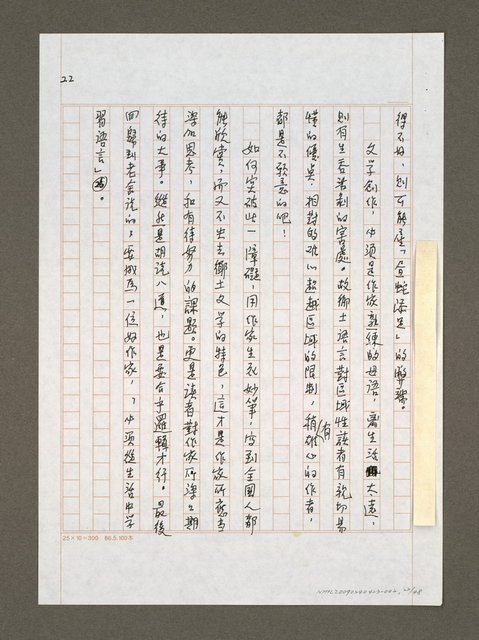 22
得不好，則可能產「畫蛇添足」的弊害。
文学創作，必須是作家熟練的母語，离生活太遠，
則有生吞活剝的害處。故鄉土語言對区域性讀者有親切易
懂的優点，相对的难以超越区域的限制，稍有雄心的作者，
都是不願意的吧！
如何突破此一障礙，用作家生花妙筆，寫到全國人都
能欣賞，而又不失去鄉土文学的特色，這才是作家所應当
深加思考，和有待努力的課題。更是讀者對作家所深深期
待的大事。縱然是胡說八道，也是要合乎邏輯才行。最後
回歸到老舍說的：要成為一位好作家，「必須從生活中学
習語言」。
25×10=300 86.5.100本
NMTL20090240423-002, 22/48